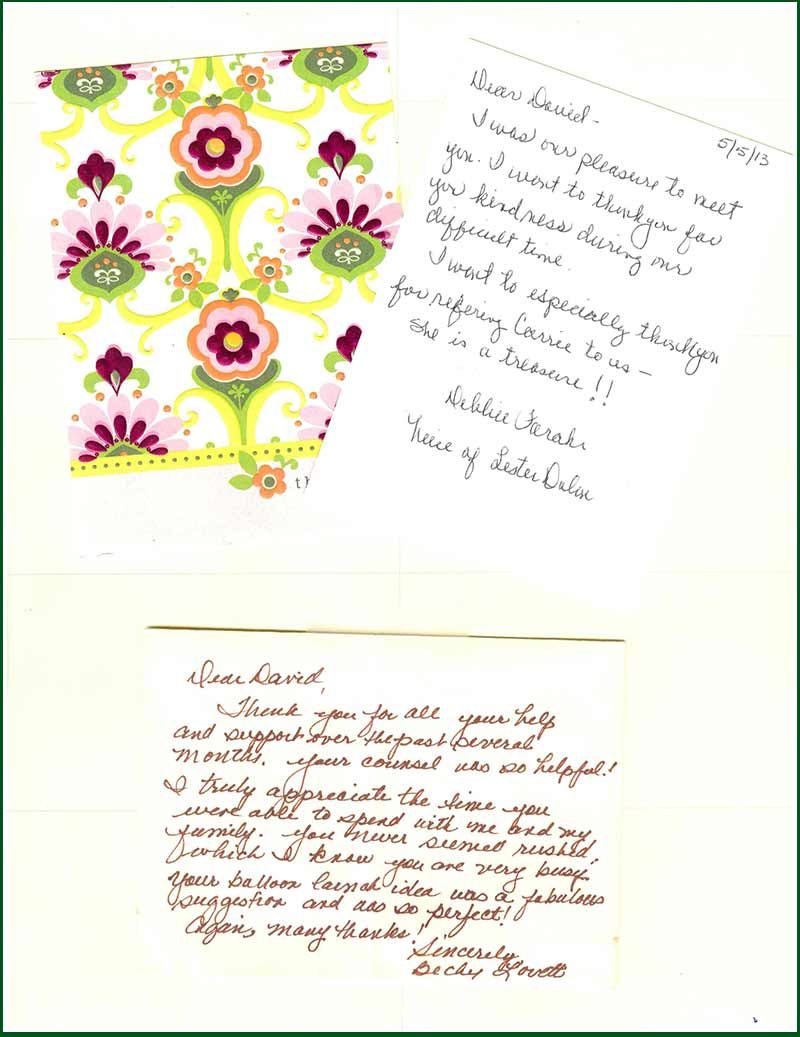 Dear David -
5/5/13
I was our pleasure to meet
you. I want to thank you for
you kindness during our
difficult time.
I want to especially thank you
for refering Carrie to us -
she is a treasure!!
Debbie Farah
Neice of Lester
th
Dear David,
Thank you for all your help
and support over the past several
months. Your counsel was so helpful!
I truly appreciate the time you
were able to spend with me and my
family. You never seemed rushed,
which I know you are very busy.
Your balloon launch idea was a fabulous
suggestion and was so perfect!
Again, many thanks!
Sincerely,
Becky Lovett